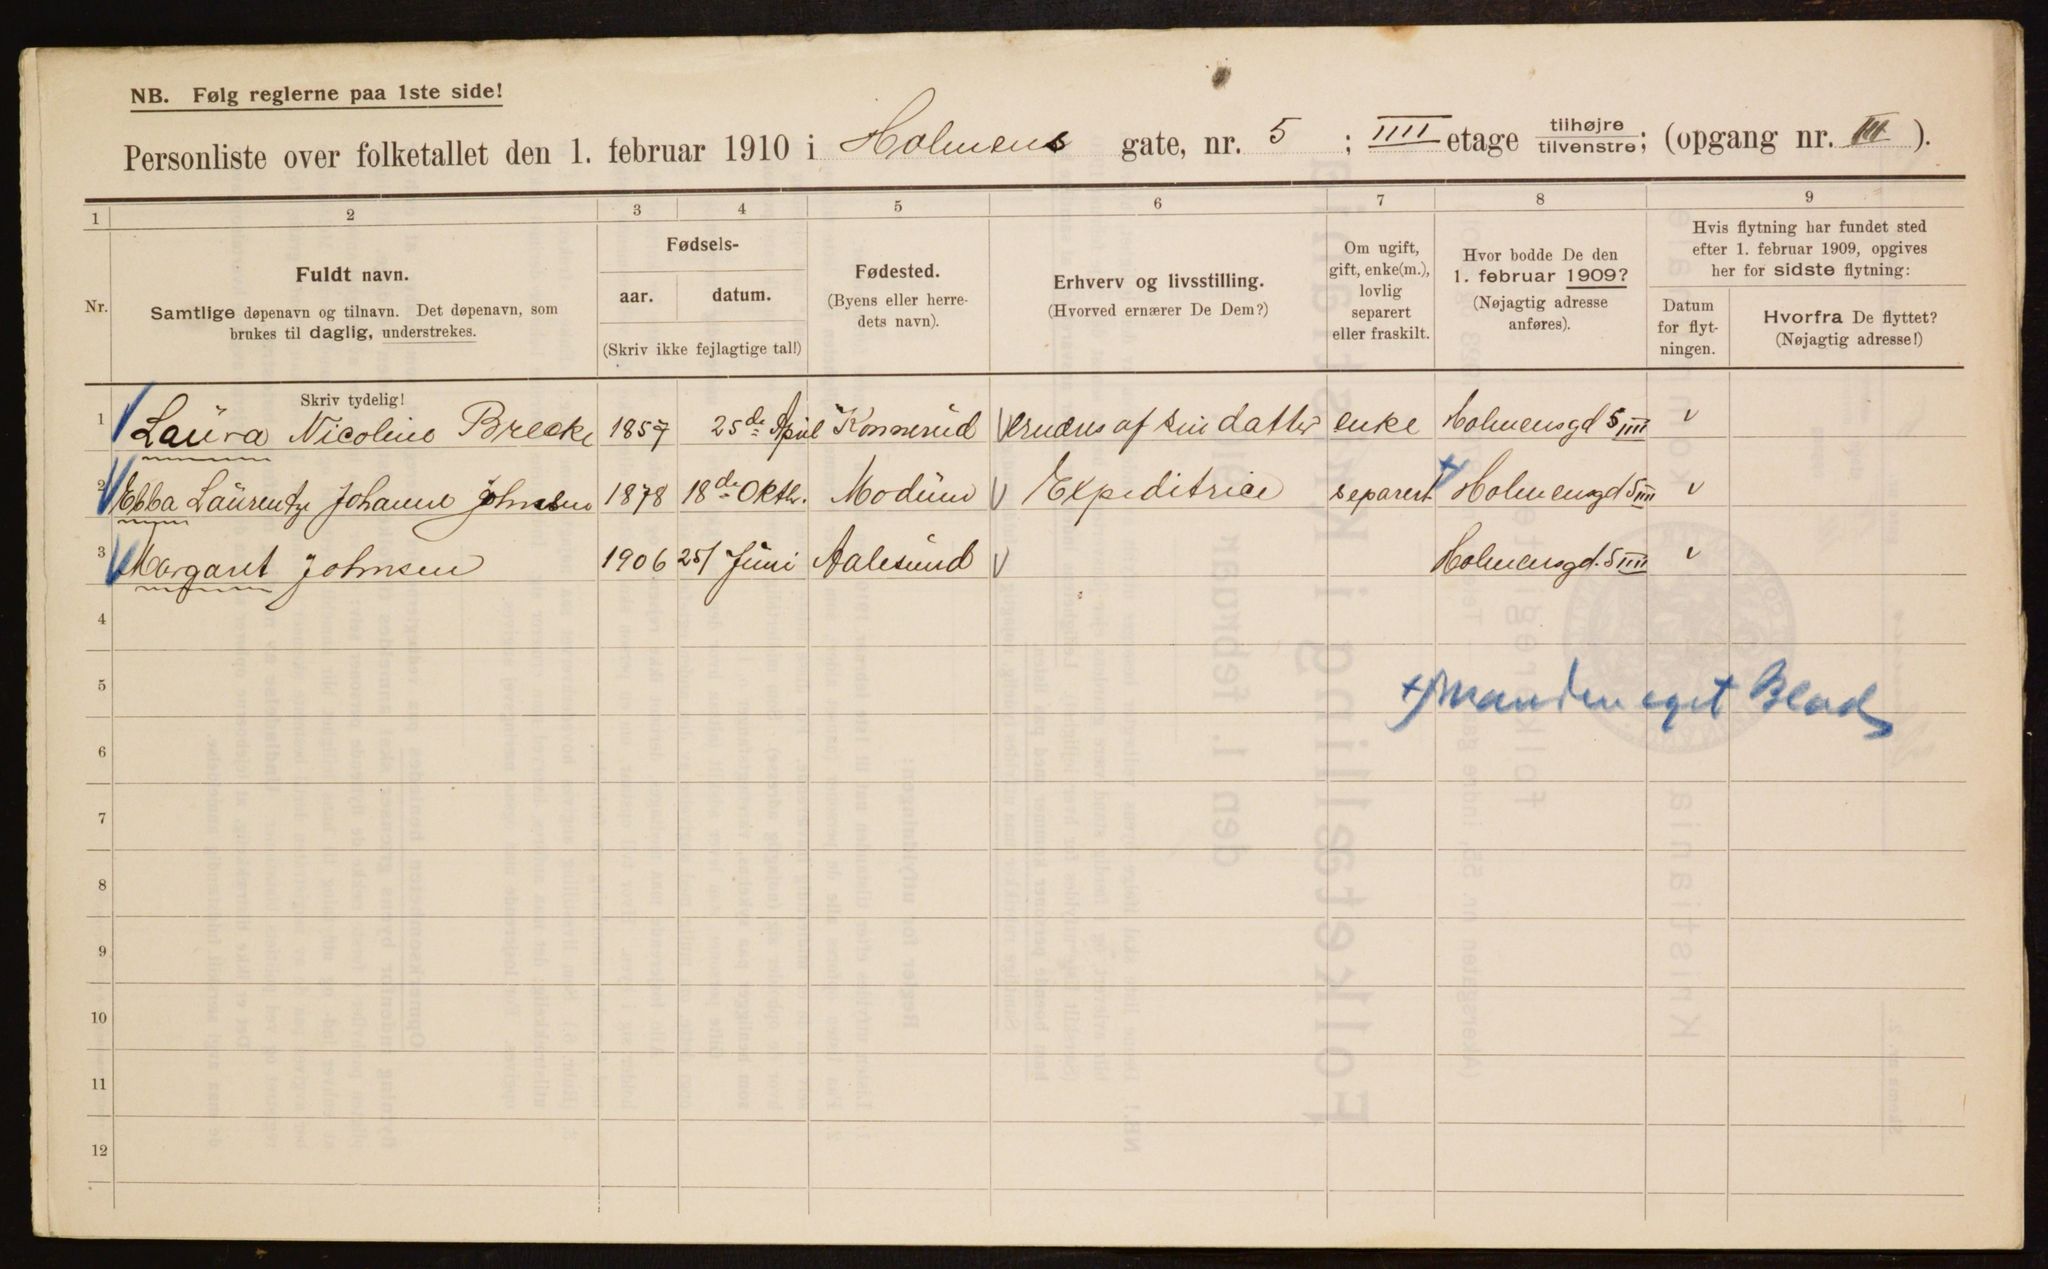 NB. Følg reglerne paa 1ste side!
Personliste over folketallet den 1. februar 1910 i Holmens gate, nr. 5 ; IIII etage tilhøjre tilvenstre; (opgang nr. III ).
1 2 3 4 5 6 7 8 9
Nr.
Fuldt navn.
Samtlige døpenavn og tilnavn. Det døpenavn, som
brukes til daglig, understrekes.
Fødsels-
aar. datum.
(Skriv ikke fejlagtige tal!)
Fødested.
(Byens eller herre-
dets navn).
Erhverv og livsstilling.
(Hvorved ernærer De Dem?)
Om ugift,
gift, enke(m.),
lovlig
separert
eller fraskilt.
Hvor bodde De den
1. februar 1909?
(Nøjagtig adresse
anføres).
Hvis flytning har fundet sted
efter 1. februar 1909, opgives
her for sidste flytning:
Datum
for flyt-
ningen.
Hvorfra De flyttet?
(Nøjagtig adresse!)
Skriv tydelig!
1 Laura Nicoline Brecke 1857 25de April Konnerud ernæres af sin datter enke Holmensgd 5 IIII
2 Ebba Laurentze Johanne Johnsen 1878 18de Oktbr. Modum Expeditrice separert Holmensgd 5 IIII
3 Margaret Johnsen 1906 25/ Juni Aalesund Holmensgd. 5 IIII
4
5 +) Manden eget Blad
6
7
8
9
10
11
12